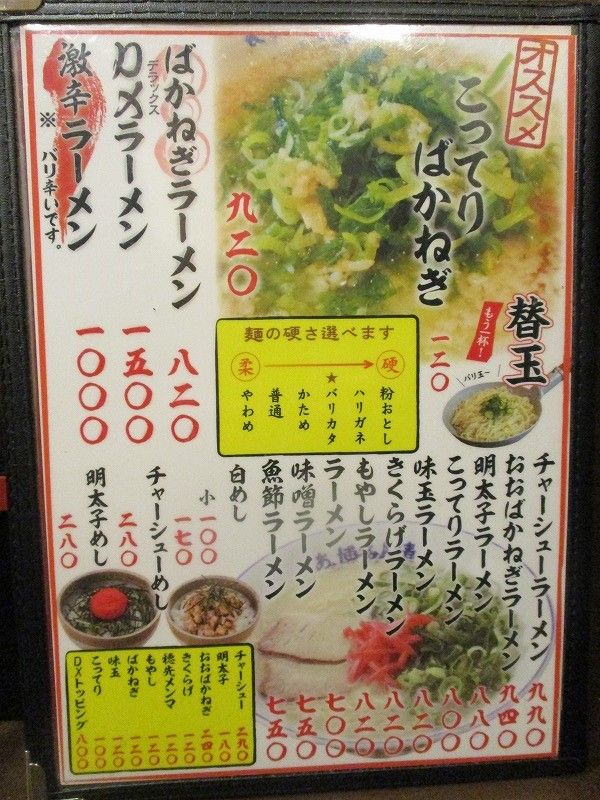 オススメ
こってり
ばかねぎ
九二〇
ばかねぎラーメン
八二〇
デラックス
DXラーメン
一五〇〇
激辛ラーメン
※バリ辛いです。
一〇〇〇
替玉
もう一杯!
一二〇
バリ玉一
麺の硬さ選べます
柔 硬
粉おとし
ハリガネ
★バリカタ
かため
普通
やわめ
チャーシューラーメン 九九〇
おおばかねぎラーメン 九四〇
明太子ラーメン 八八〇
こってりラーメン 八〇〇
味玉ラーメン 八二〇
きくらげラーメン 八二〇
もやしラーメン 八二〇
ラーメン 七〇〇
味噌ラーメン 七五〇
魚節ラーメン 七五〇
白めし 一七〇
小 一〇〇
チャーシューめし 二八〇
明太子めし 二八〇
チャーシュー 二九〇
明太子 一八〇
おおばかねぎ 二四〇
きくらげ 一二〇
穂先メンマ 一二〇
もやし 一二〇
ばかねぎ 一二〇
味玉 一二〇
こってり 一〇〇
DXトッピング 八〇〇